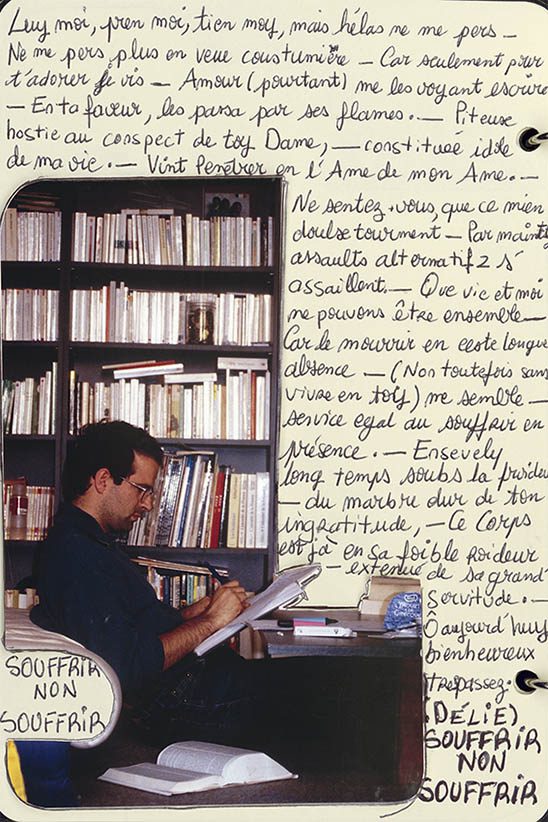 Luy moi, pren moi, tien moy, mais hélas ne me pers —
Ne me pers plus en veue coustumière — Car seulement pour
t'adorer je vis — Amour (pourtant) me les voyant escrire
— En ta faveur, les passa par ses flames. — Piteuse
hostie au conspect de toy Dame, — constituée idole
de ma vie. — Vint Penétrer en l'Ame de mon Ame. —
Ne sentez-vous, que ce mien
doulx tourment — Par maintz
assaults alternatifz s'
assaillent. — Que vie et moi
ne pouvons être ensemble —
Car le mourrir en ceste longue
absence — (Non toutefois sans
vivre en toy) me semble —
service egal au souffrir en
présence. — Ensevely
long temps soubs la froideur
— du marbre dur de ton
ingratitude, — Ce Corps
est jà en sa foible roideur
— extenué de sa grand'
Servitude. —
Ô aujourd'huy
bienheureux
trepassez.
(DÉLIE)
SOUFFRIR
NON
SOUFFRIR
SOUFFRIR
NON
SOUFFRIR